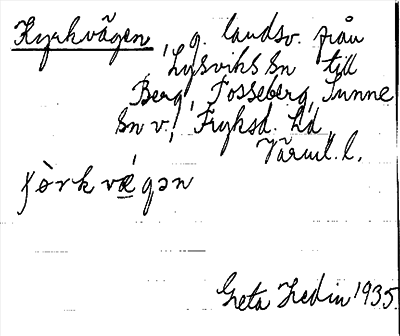 Kyrkvägen, g. landsv. från
Lysviks sn till
Berg, Fosseberg, Sunne
sn v., Fryksd. hd,
Värml. l.
çò̀rkvǽgən
Greta Hedin 1935.